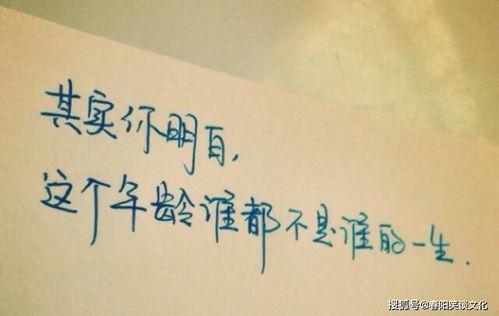 其实你明白，
这个年龄谁都不是谁的一生.
搜狐号@春阳笑谈文化